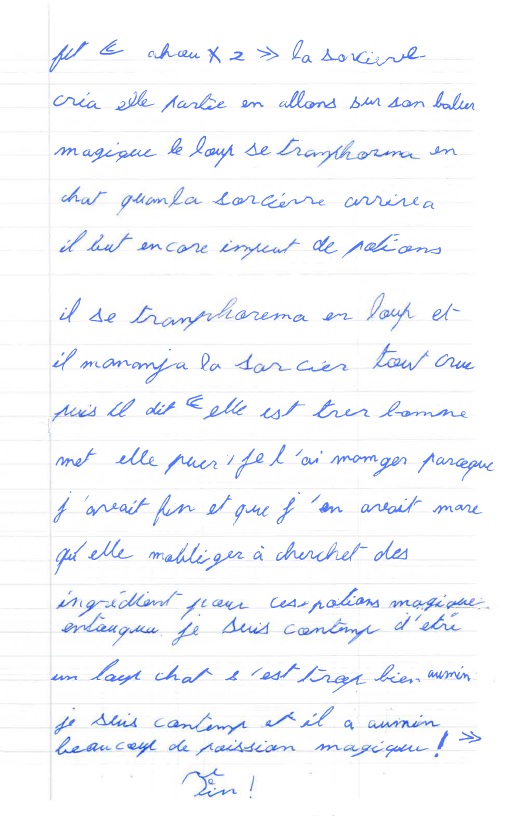 fit « ahou x 2 » la sorcierre
cria elle partie en allons sur son baleu
magique le loup se tranphorma en
chat quan la sorcierre arrivea
il but encore impeut de potions
il se tranphorema en loup et
il mananja la sorcier tout crue
puis il dit « elle est trer bonne
met elle puer, je l'ai manger parceque
j'avait fin et que j'en avait mare
qu'elle mobliger à cherchet des
ingrédient pour ces potions magique.
entouqueu je suis contemp d'etre
un loup chat s'est trop bien aumin
je suis contemp et il a aumin
beaucoup de poission magique ! »
Fin !